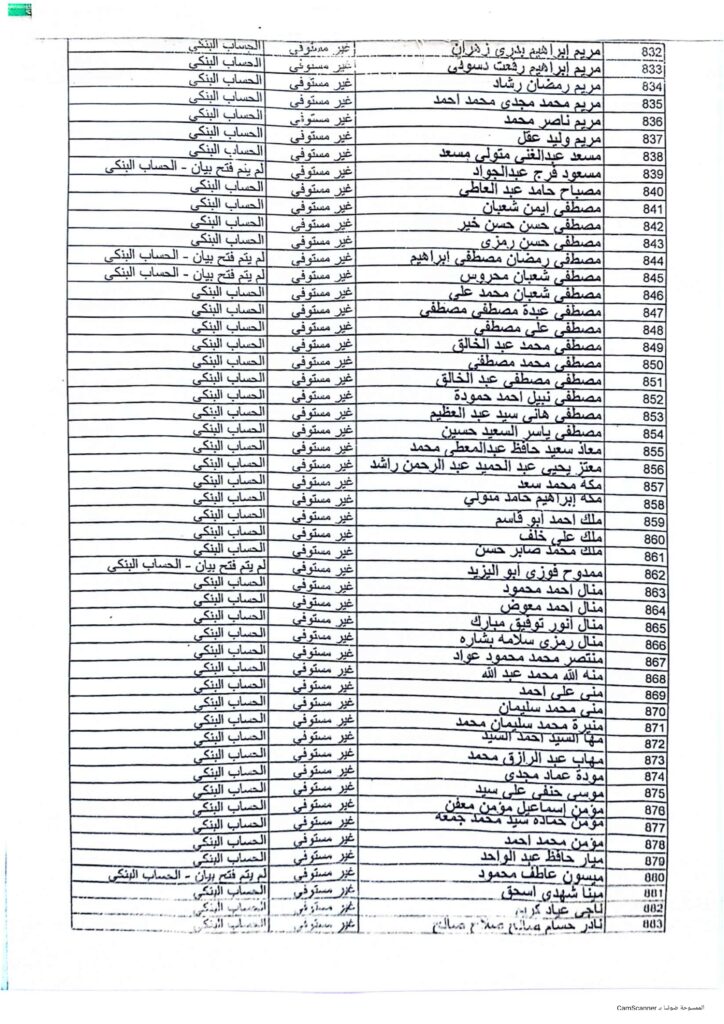 832 مريم إبراهيم بدرى زهران غير مستوفي الحساب البنكي
833 مريم إبراهيم رفعت دسوقى غير مستوفي الحساب البنكي
834 مريم رمضان رشاد غير مستوفي الحساب البنكي
835 مريم محمد مجدى محمد احمد غير مستوفي الحساب البنكي
836 مريم ناصر محمد غير مستوفي الحساب البنكي
837 مريم وليد عقل غير مستوفي الحساب البنكي
838 مسعد عبدالغنى متولى مسعد غير مستوفي الحساب البنكي
839 مسعود فرج عبدالجواد غير مستوفي لم يتم فتح بيان - الحساب البنكي
840 مصباح حامد عبد العاطى غير مستوفي الحساب البنكي
841 مصطفى ايمن شعبان غير مستوفي الحساب البنكي
842 مصطفى حسن حسن خير غير مستوفي الحساب البنكي
843 مصطفى حسن رمزى غير مستوفي الحساب البنكي
844 مصطفى رمضان مصطفى إبراهيم غير مستوفي لم يتم فتح بيان - الحساب البنكي
845 مصطفى شعبان محروس غير مستوفي لم يتم فتح بيان - الحساب البنكي
846 مصطفى شعبان محمد على غير مستوفي الحساب البنكي
847 مصطفى عبدة مصطفى مصطفى غير مستوفي الحساب البنكي
848 مصطفى على مصطفى غير مستوفي الحساب البنكي
849 مصطفى محمد عبد الخالق غير مستوفي الحساب البنكي
850 مصطفى محمد مصطفى غير مستوفي الحساب البنكي
851 مصطفى مصطفى عبد الخالق غير مستوفي الحساب البنكي
852 مصطفى نبيل احمد حمودة غير مستوفي الحساب البنكي
853 مصطفى هانى سيد عبد العظيم غير مستوفي الحساب البنكي
854 مصطفى ياسر السعيد حسين غير مستوفي الحساب البنكي
855 معاذ سعيد حافظ عبدالمعطى محمد غير مستوفي الحساب البنكي
856 معتز يحيى عبد الحميد عبد الرحمن راشد غير مستوفي الحساب البنكي
857 مكة محمد سعد غير مستوفي الحساب البنكي
858 مكه إبراهيم حامد متولي غير مستوفي الحساب البنكي
859 ملك احمد ابو قاسم غير مستوفي الحساب البنكي
860 ملك على خلف غير مستوفي الحساب البنكي
861 ملك محمد صابر حسن غير مستوفي الحساب البنكي
862 ممدوح فوزى ابو اليزيد غير مستوفي لم يتم فتح بيان - الحساب البنكي
863 منال احمد محمود غير مستوفي الحساب البنكي
864 منال احمد معوض غير مستوفي الحساب البنكي
865 منال انور توفيق مبارك غير مستوفي الحساب البنكي
866 منال رمزى سلامه بشاره غير مستوفي الحساب البنكي
867 منتصر محمد محمود عواد غير مستوفي الحساب البنكي
868 منه الله محمد عبد الله غير مستوفي الحساب البنكي
869 منى على احمد غير مستوفي الحساب البنكي
870 منى محمد سليمان غير مستوفي الحساب البنكي
871 منيرة محمد سليمان محمد غير مستوفي الحساب البنكي
872 مها السيد احمد السيد غير مستوفي الحساب البنكي
873 مهاب عبد الرازق محمد غير مستوفي الحساب البنكي
874 مودة عماد مجدى غير مستوفي الحساب البنكي
875 موسى حنفى على سيد غير مستوفي الحساب البنكي
876 مؤمن إسماعيل مؤمن معفن غير مستوفي الحساب البنكي
877 مؤمن حماده سيد محمد جمعه غير مستوفي الحساب البنكي
878 مؤمن محمد احمد غير مستوفي الحساب البنكي
879 ميار حافظ عبد الواحد غير مستوفي الحساب البنكي
880 ميسون عاطف محمود غير مستوفي لم يتم فتح بيان - الحساب البنكي
881 مينا شهدى اسحق غير مستوفي الحساب البنكي
882 ناجى عياد كريم غير مستوفي الحساب البنكي
883 نادر حسام صالح صلاح صالح غير مستوفي الحساب البنكي
الممسوحة ضوئيا بـ CamScanner